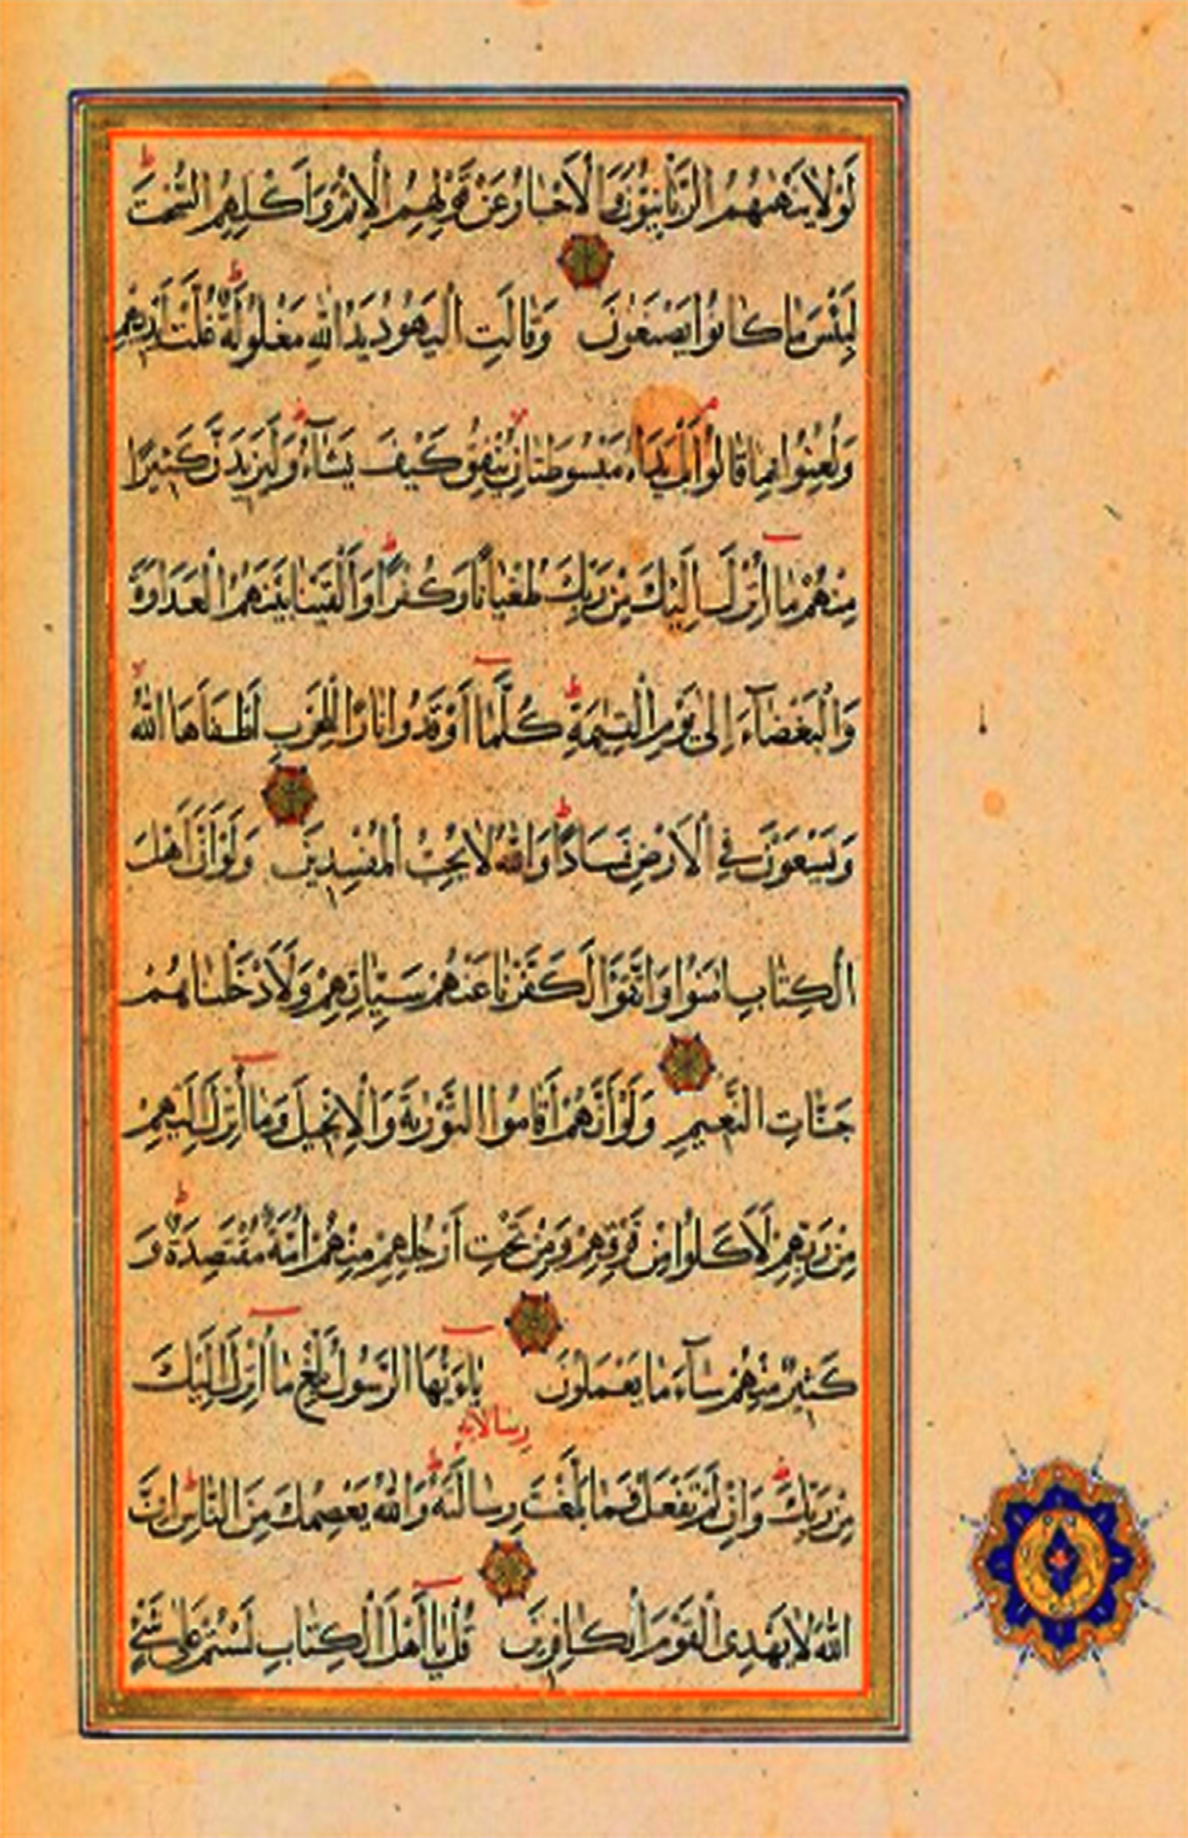 لَوْلَا يَنْهٰيهُمُ الرَّبَّانِيُّونَ وَالْاَحْبَارُ عَنْ قَوْلِهِمُ الْاِثْمَ وَاَكْلِهِمُ السُّحْتَ ط
لَبِئْسَ مَا كَانُوا يَصْنَعُونَ وَقَالَتِ الْيَهُودُ يَدُ اللّٰهِ مَغْلُولَةٌ ط غُلَّتْ اَيْدِيهِمْ
وَلُعِنُوا بِمَا قَالُوا م بَلْ يَدَاهُ مَبْسُوطَتَانِ يُنْفِقُ كَيْفَ يَشَآءُ وَلَيَزِيدَنَّ كَثِيرًا
مِنْهُمْ مَا اُنْزِلَ اِلَيْكَ مِنْ رَبِّكَ طُغْيَانًا وَكُفْرًا ط وَاَلْقَيْنَا بَيْنَهُمُ الْعَدَاوَةَ
وَالْبَغْضَآءَ اِلٰى يَوْمِ الْقِيٰمَةِ ط كُلَّمَا اَوْقَدُوا نَارًا لِلْحَرْبِ اَطْفَاَهَا اللّٰهُ لا
وَيَسْعَوْنَ فِي الْاَرْضِ فَسَادًا ط وَاللّٰهُ لَا يُحِبُّ الْمُفْسِدِينَ وَلَوْ اَنَّ اَهْلَ
الْكِتَابِ اٰمَنُوا وَاتَّقَوْا لَكَفَّرْنَا عَنْهُمْ سَيِّاٰتِهِمْ وَلَاَدْخَلْنَاهُمْ
جَنَّاتِ النَّعِيمِ وَلَوْ اَنَّهُمْ اَقَامُوا التَّوْرٰيةَ وَالْاِنْجِيلَ وَمَا اُنْزِلَ اِلَيْهِمْ
مِنْ رَبِّهِمْ لَاَكَلُوا مِنْ فَوْقِهِمْ وَمِنْ تَحْتِ اَرْجُلِهِمْ مِنْهُمْ اُمَّةٌ مُقْتَصِدَةٌ ط وَ
كَثِيرٌ مِنْهُمْ سَآءَ مَا يَعْمَلُونَ يَا اَيُّهَا الرَّسُولُ بَلِّغْ مَا اُنْزِلَ اِلَيْكَ
رسالاته
مِنْ رَبِّكَ ط وَاِنْ لَمْ تَفْعَلْ فَمَا بَلَّغْتَ رِسَالَتَهُ ط وَاللّٰهُ يَعْصِمُكَ مِنَ النَّاسِ ط اِنَّ
اللّٰهَ لَا يَهْدِى الْقَوْمَ الْكَافِرِينَ قُلْ يَا اَهْلَ الْكِتَابِ لَسْتُمْ عَلٰى شَىْءٍ